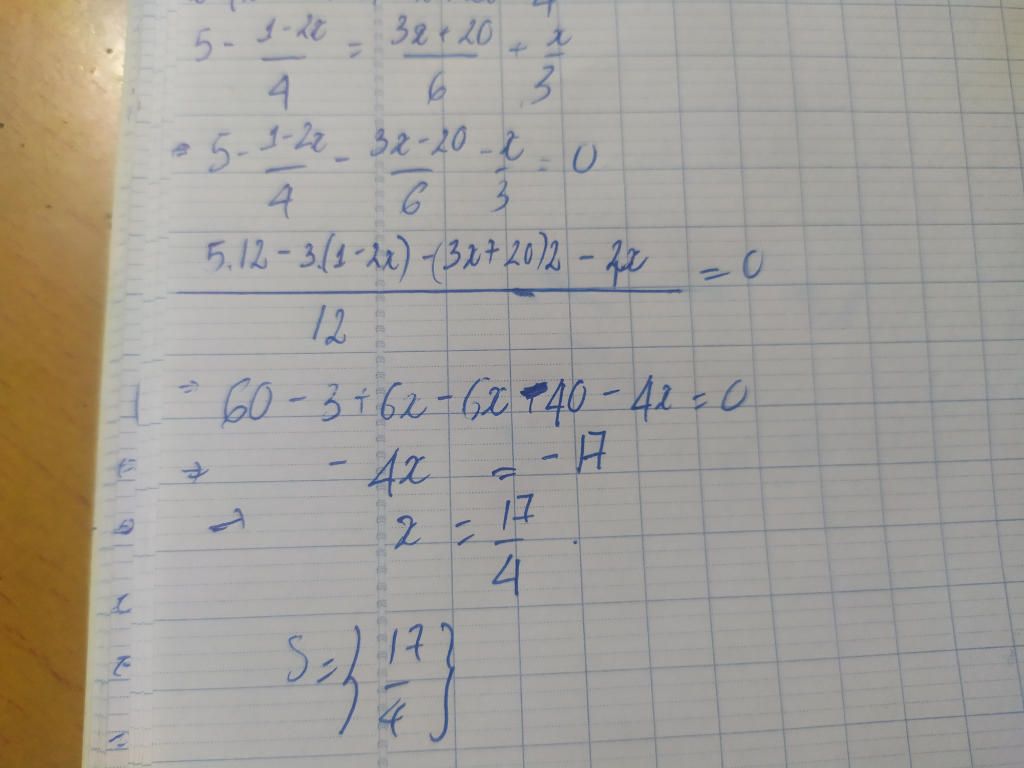 5 - (1-2x)/4 = (3x+20)/6 + x/3
= 5 - (1-2x)/4 - (3x-20)/6 - x/3 = 0
(5.12 - 3.(1-2x) - (3x+20)2 - 2x)/12 = 0
=> 60 - 3 + 6x - 6x - 40 - 4x = 0
=> - 4x = - 17
=> x = 17/4 .
S = {17/4}